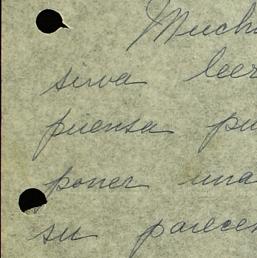 Much
sirva leer
piensa pu
poner una
su parecer